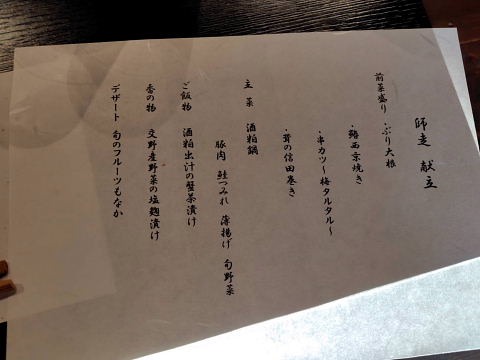 師走 献立
前菜盛り ・ぶり大根
・鰆西京焼き
・串カツ～梅タルタル～
・茸の信田巻き
主菜 酒粕鍋
豚肉 鮭つみれ 薄揚げ 旬野菜
ご飯物 酒粕出汁の蟹茶漬け
香の物 交野産野菜の塩麹漬け
デザート 旬のフルーツもなか